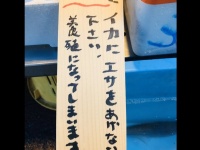 イカにエサをあげない
下さい、
養殖になってしまいます